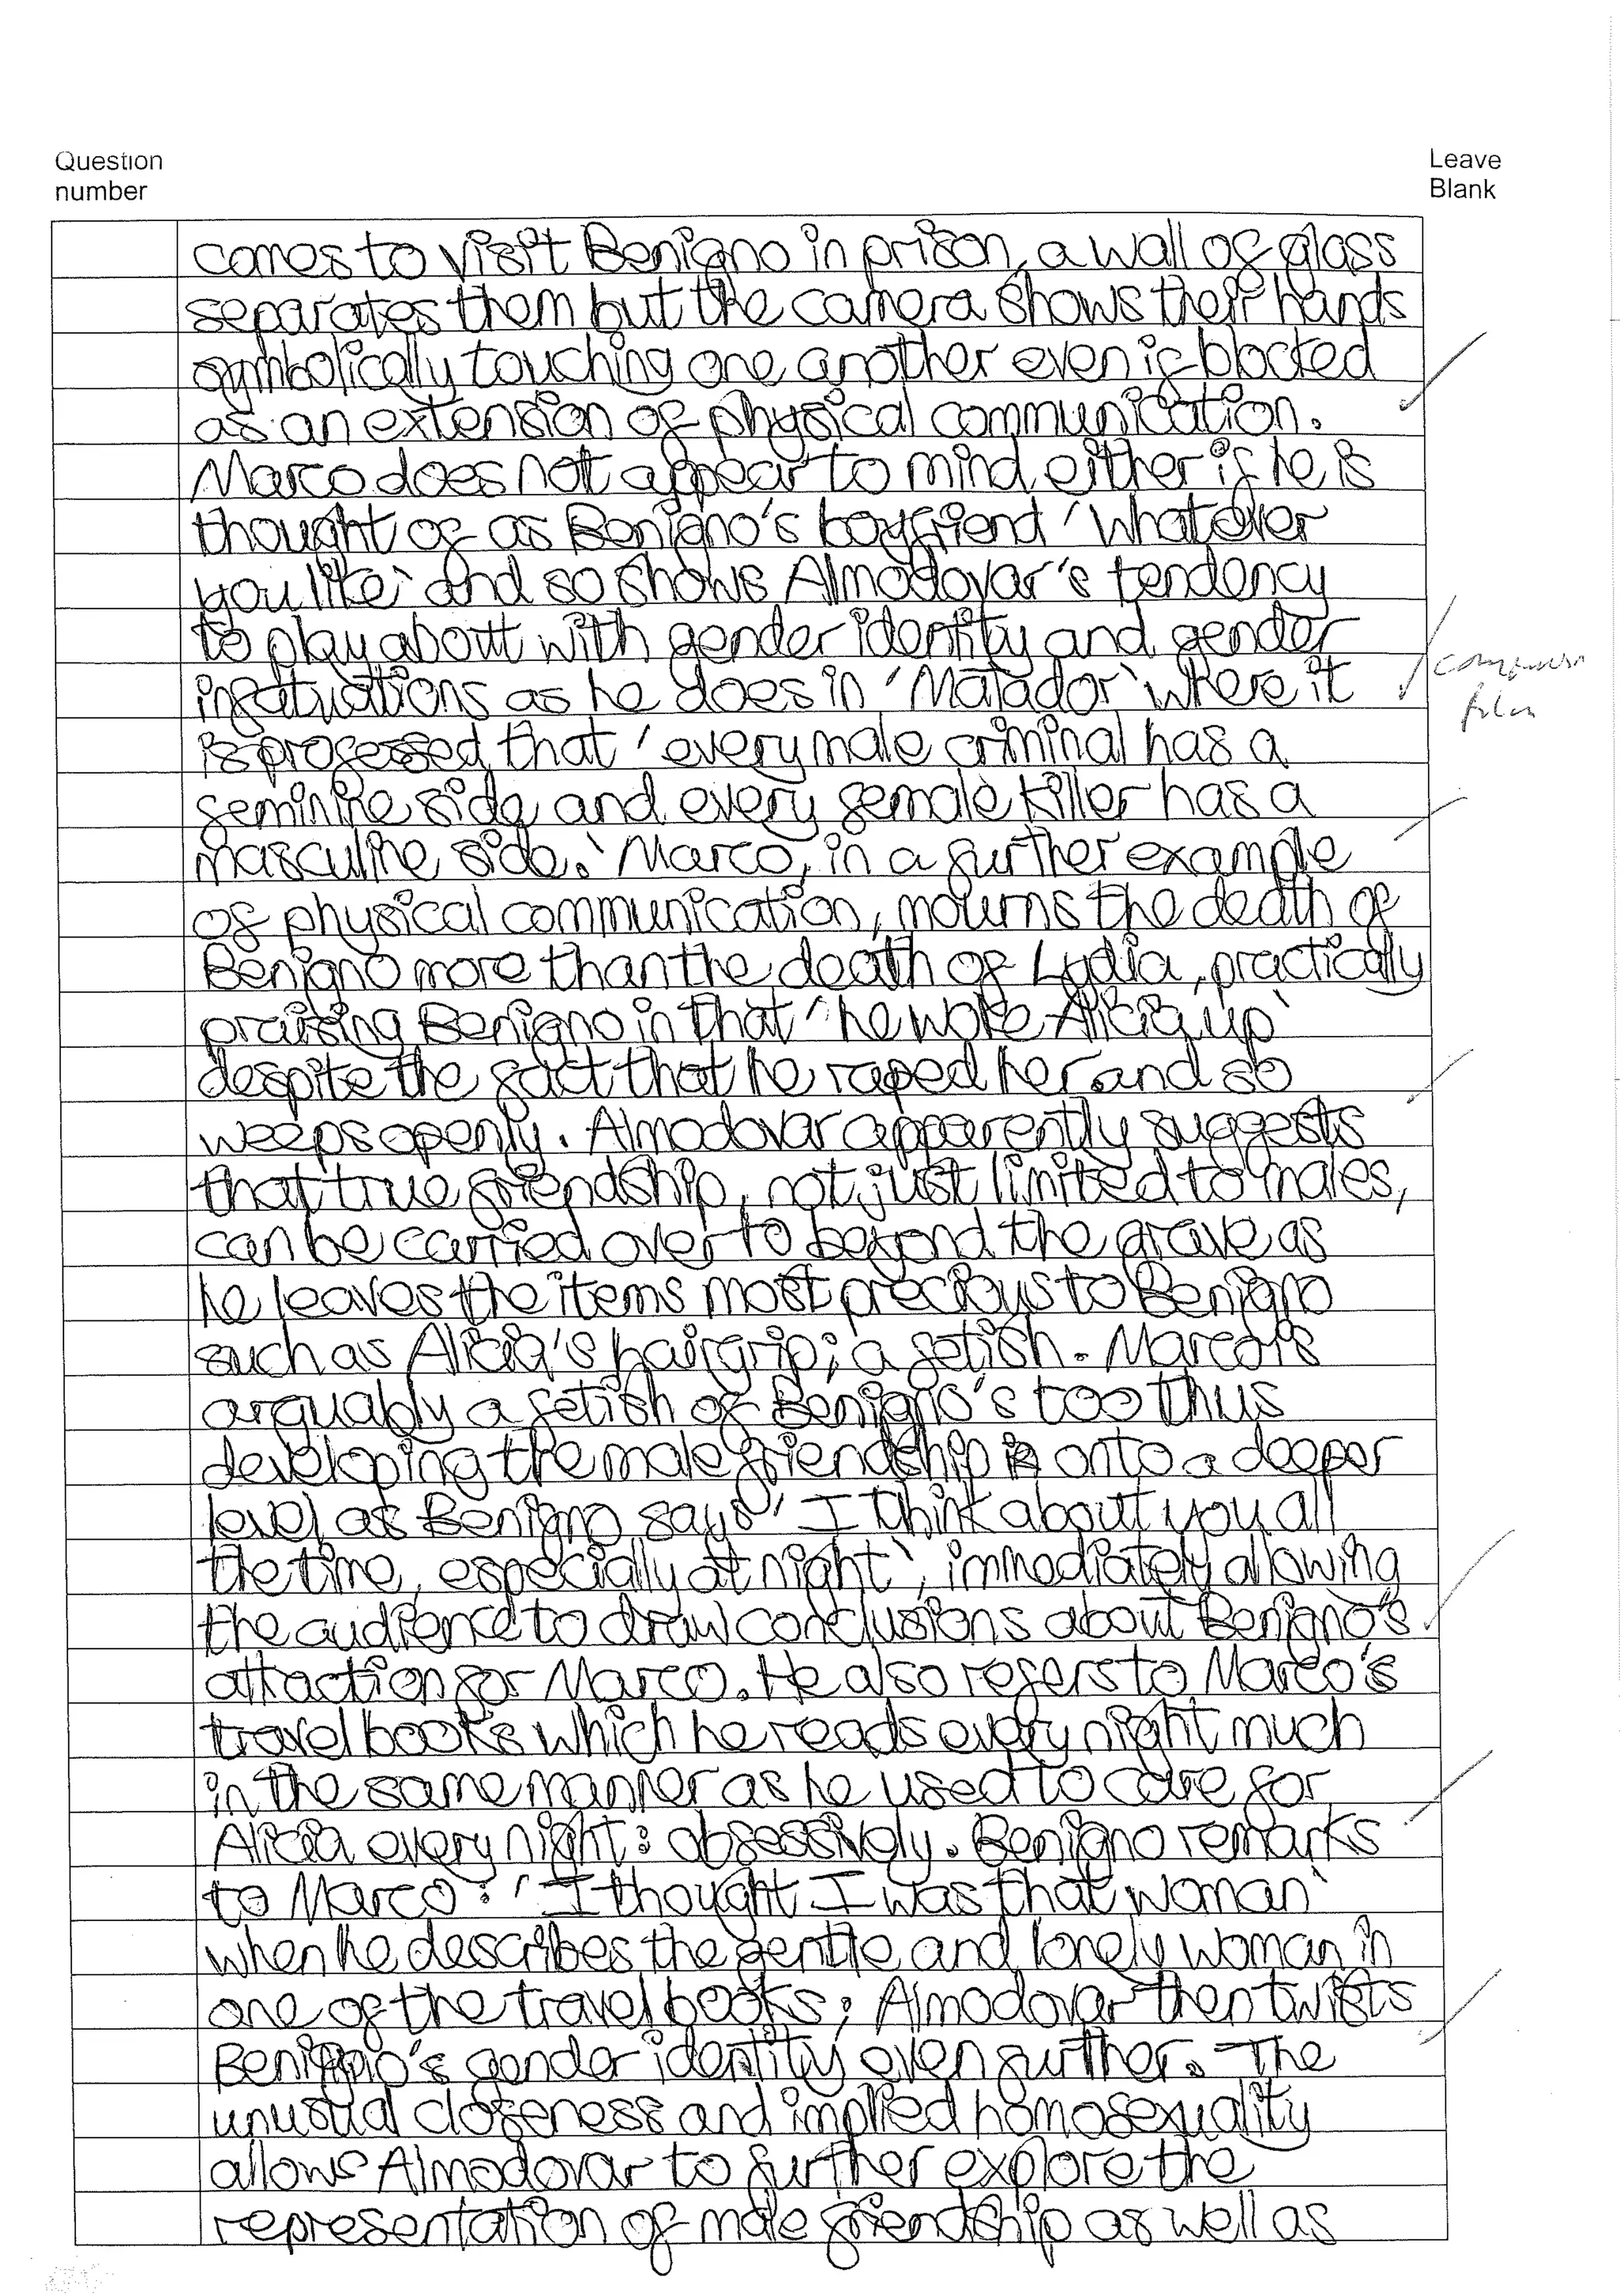 Question number
Leave Blank
comes to visit Benigno in prison, a wall of glass
separates them but the camera shows their hands
symbolically touching one another even if blocked
as an extension of physical communication.
Marco does not appear to mind either if he is
thought of as Benigno's boyfriend 'whatever
you like' and so shows Almodovar's tendency
to play about with gender identity and gender
infatuations as he does in 'Matador' where it
is professed that 'every male criminal has a
feminine side and every female killer has a
masculine side.' Marco, in a further example
of physical communication, mourns the death of
Benigno more than the death of Lydia, practically
praising Benigno in that 'he woke Alicia up'
despite the fact that he raped her and so
weeps openly. Almodovar apparently suggests
that true friendship, not just limited to males,
can be carried over to beyond the grave as
he leaves the items most precious to Benigno
such as Alicia's hairgrip; a fetish. Marco is
arguably a fetish of Benigno's too thus
developing the male friendship onto a deeper
level as Benigno says 'I think about you all
the time, especially at night', immediately allowing
the audience to draw conclusions about Benigno's
attraction for Marco. He also refers to Marco's
travel books which he reads every night much
in the same manner as he used to care for
Alicia every night: obsessively. Benigno remarks
to Marco: 'I thought I was that woman'
when he describes the gentle and lonely woman in
one of the travel books; Almodovar then twists
Benigno's gender identity even further. The
unusual closeness and implied homosexuality
allows Almodovar to further explore the
representation of male friendship as well as